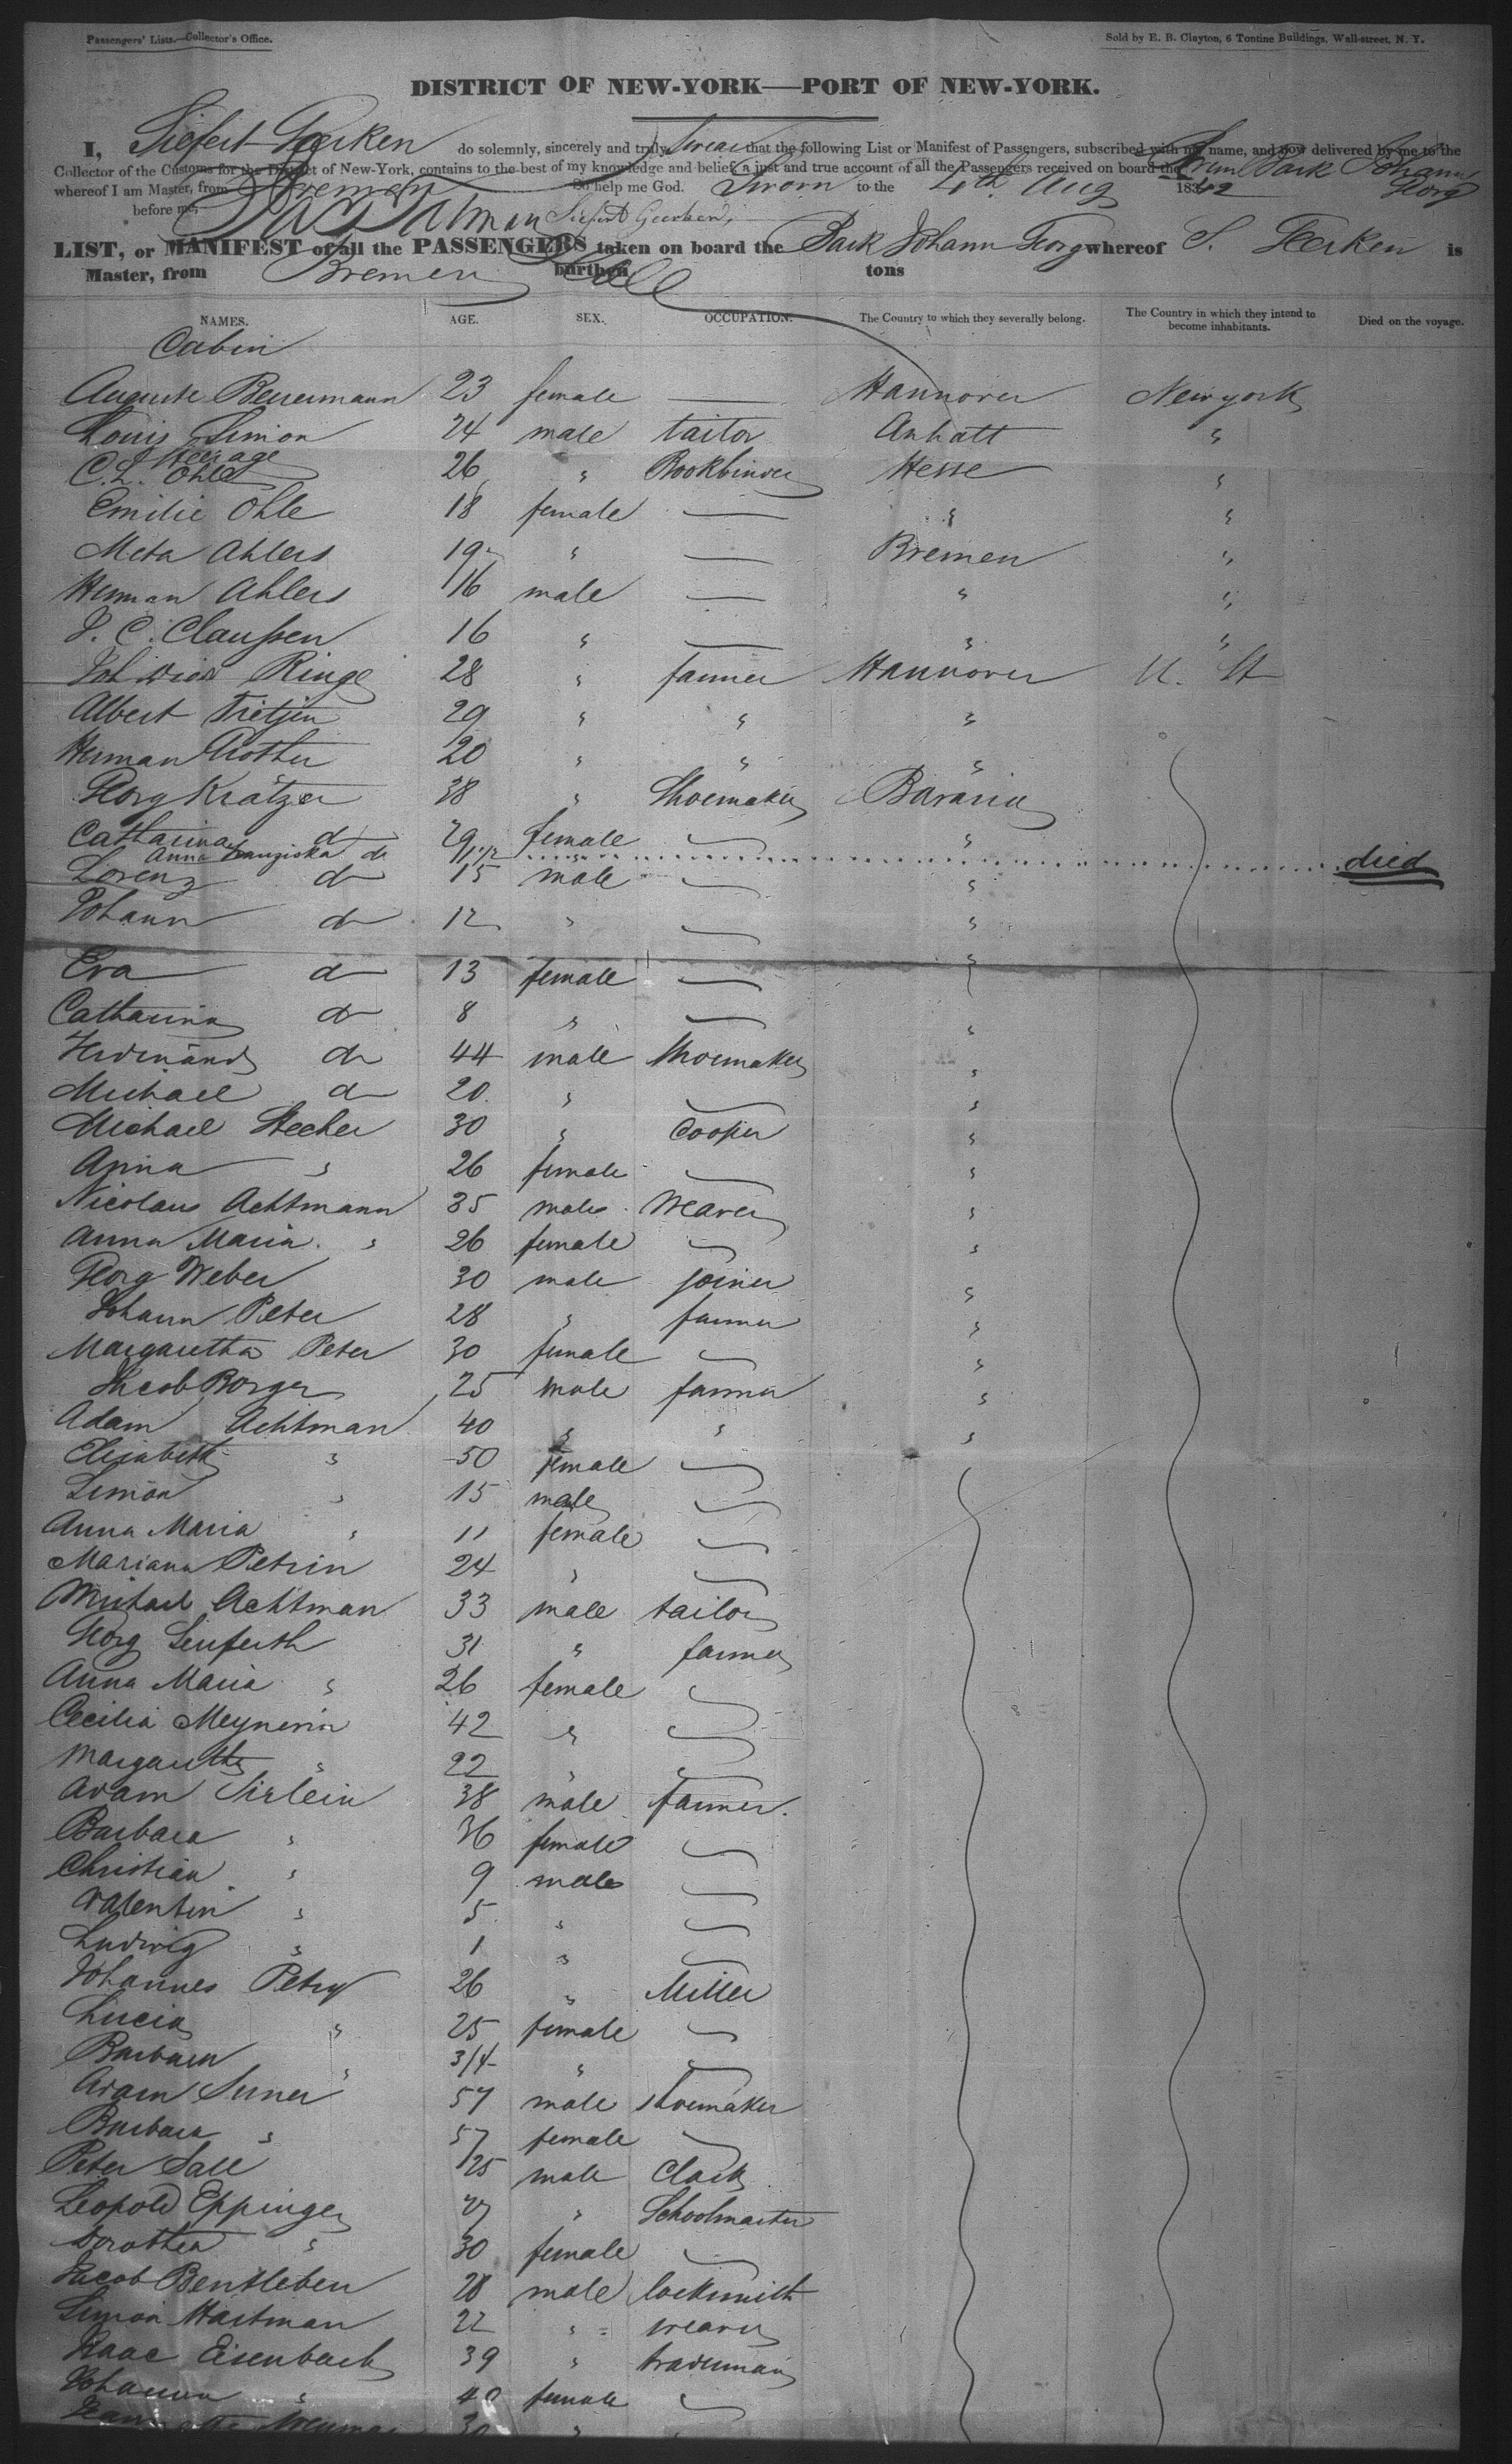 Passengers' Lists.—Collector's Office. Sold by E. B. Clayton, 6 Tontine Buildings, Wall-street, N. Y.
DISTRICT OF NEW-YORK—PORT OF NEW-YORK.
I, Siefert Gerken do solemnly, sincerely and truly Swear that the following List or Manifest of Passengers, subscribed with my name, and now delivered by me to the
Collector of the Customs for the District of New-York, contains to the best of my knowledge and belief, a just and true account of all the Passengers received on board the Bark Johann Georg
whereof I am Master, from Bremen So help me God. Sworn to the 4th Aug 1842
before me, Siefert Geerken,
LIST, or MANIFEST of all the PASSENGERS taken on board the Bark Johann Georg whereof S. Gerken is
Master, from Bremen burthen tons
NAMES. AGE. SEX. OCCUPATION. The Country to which they severally belong. The Country in which they intend to become inhabitants. Died on the voyage.
Cabin
Auguste Beuermann 23 female — Hannover New york
Louis Simon 24 male tailor Anhalt "
Steerage
C. L. Ohle 26 " Bookbinder Hesse "
Emilie Ohle 18 female — " "
Meta Ahlers 19 " — Bremen "
Herman Ahlers 16 male — " "
J. C. Claussen 16 " — " "
Joh Died Ringe 28 " farmer Hannover U. St
Albert Tietjen 29 " " "
Herman 20 " " "
Georg Krätzer 38 " Shoemaker Bavaria
Catharina do 29 female — "
Anna Franziska do 1 1/2 " died
Lorenz do 15 male — "
Johann do 12 " — "
Eva do 13 female — "
Catharina do 8 " — "
Ferdinand do 44 male Shoemaker "
Michael do 20 " — "
Michael Stecher 30 " Cooper "
Anna " 26 female — "
Nicolaus Achtmann 35 male Weaver "
Anna Maria " 26 female — "
Georg Weber 30 male joiner "
Johann Peter 28 " farmer "
Margaretha Peter 30 female — "
Jacob Borger 25 male farmer "
Adam Achtman 40 " " "
Elisabeth " 50 female —
Simon " 15 male —
Anna Maria " 11 female —
Mariana Petrin 24 " —
Michael Achtman 33 male tailor
Georg Seuferth 31 " farmer
Anna Maria " 26 female —
Cecilia Meynerin 42 " —
Margaretha " 22 " —
Adam Sirlein 38 male farmer.
Barbara " 36 female —
Christian " 9 male —
Valentin " 5 " —
Ludwig " 1 " —
Johannes Petry 26 " Miller
Lucia " 25 female —
Barbara " 3/4 " —
Adam 57 male shoemaker
Barbara " 57 female —
Peter Sall 25 male Clark
Leopold Eppinger 27 " Schoolmaster
Dorothea " 30 female —
Jacob Bentleben 28 male locksmith
Simon Hartman 22 " weaver
Isaac Eisenbach 39 " tradesman
Johanna " 40 female —
30 "